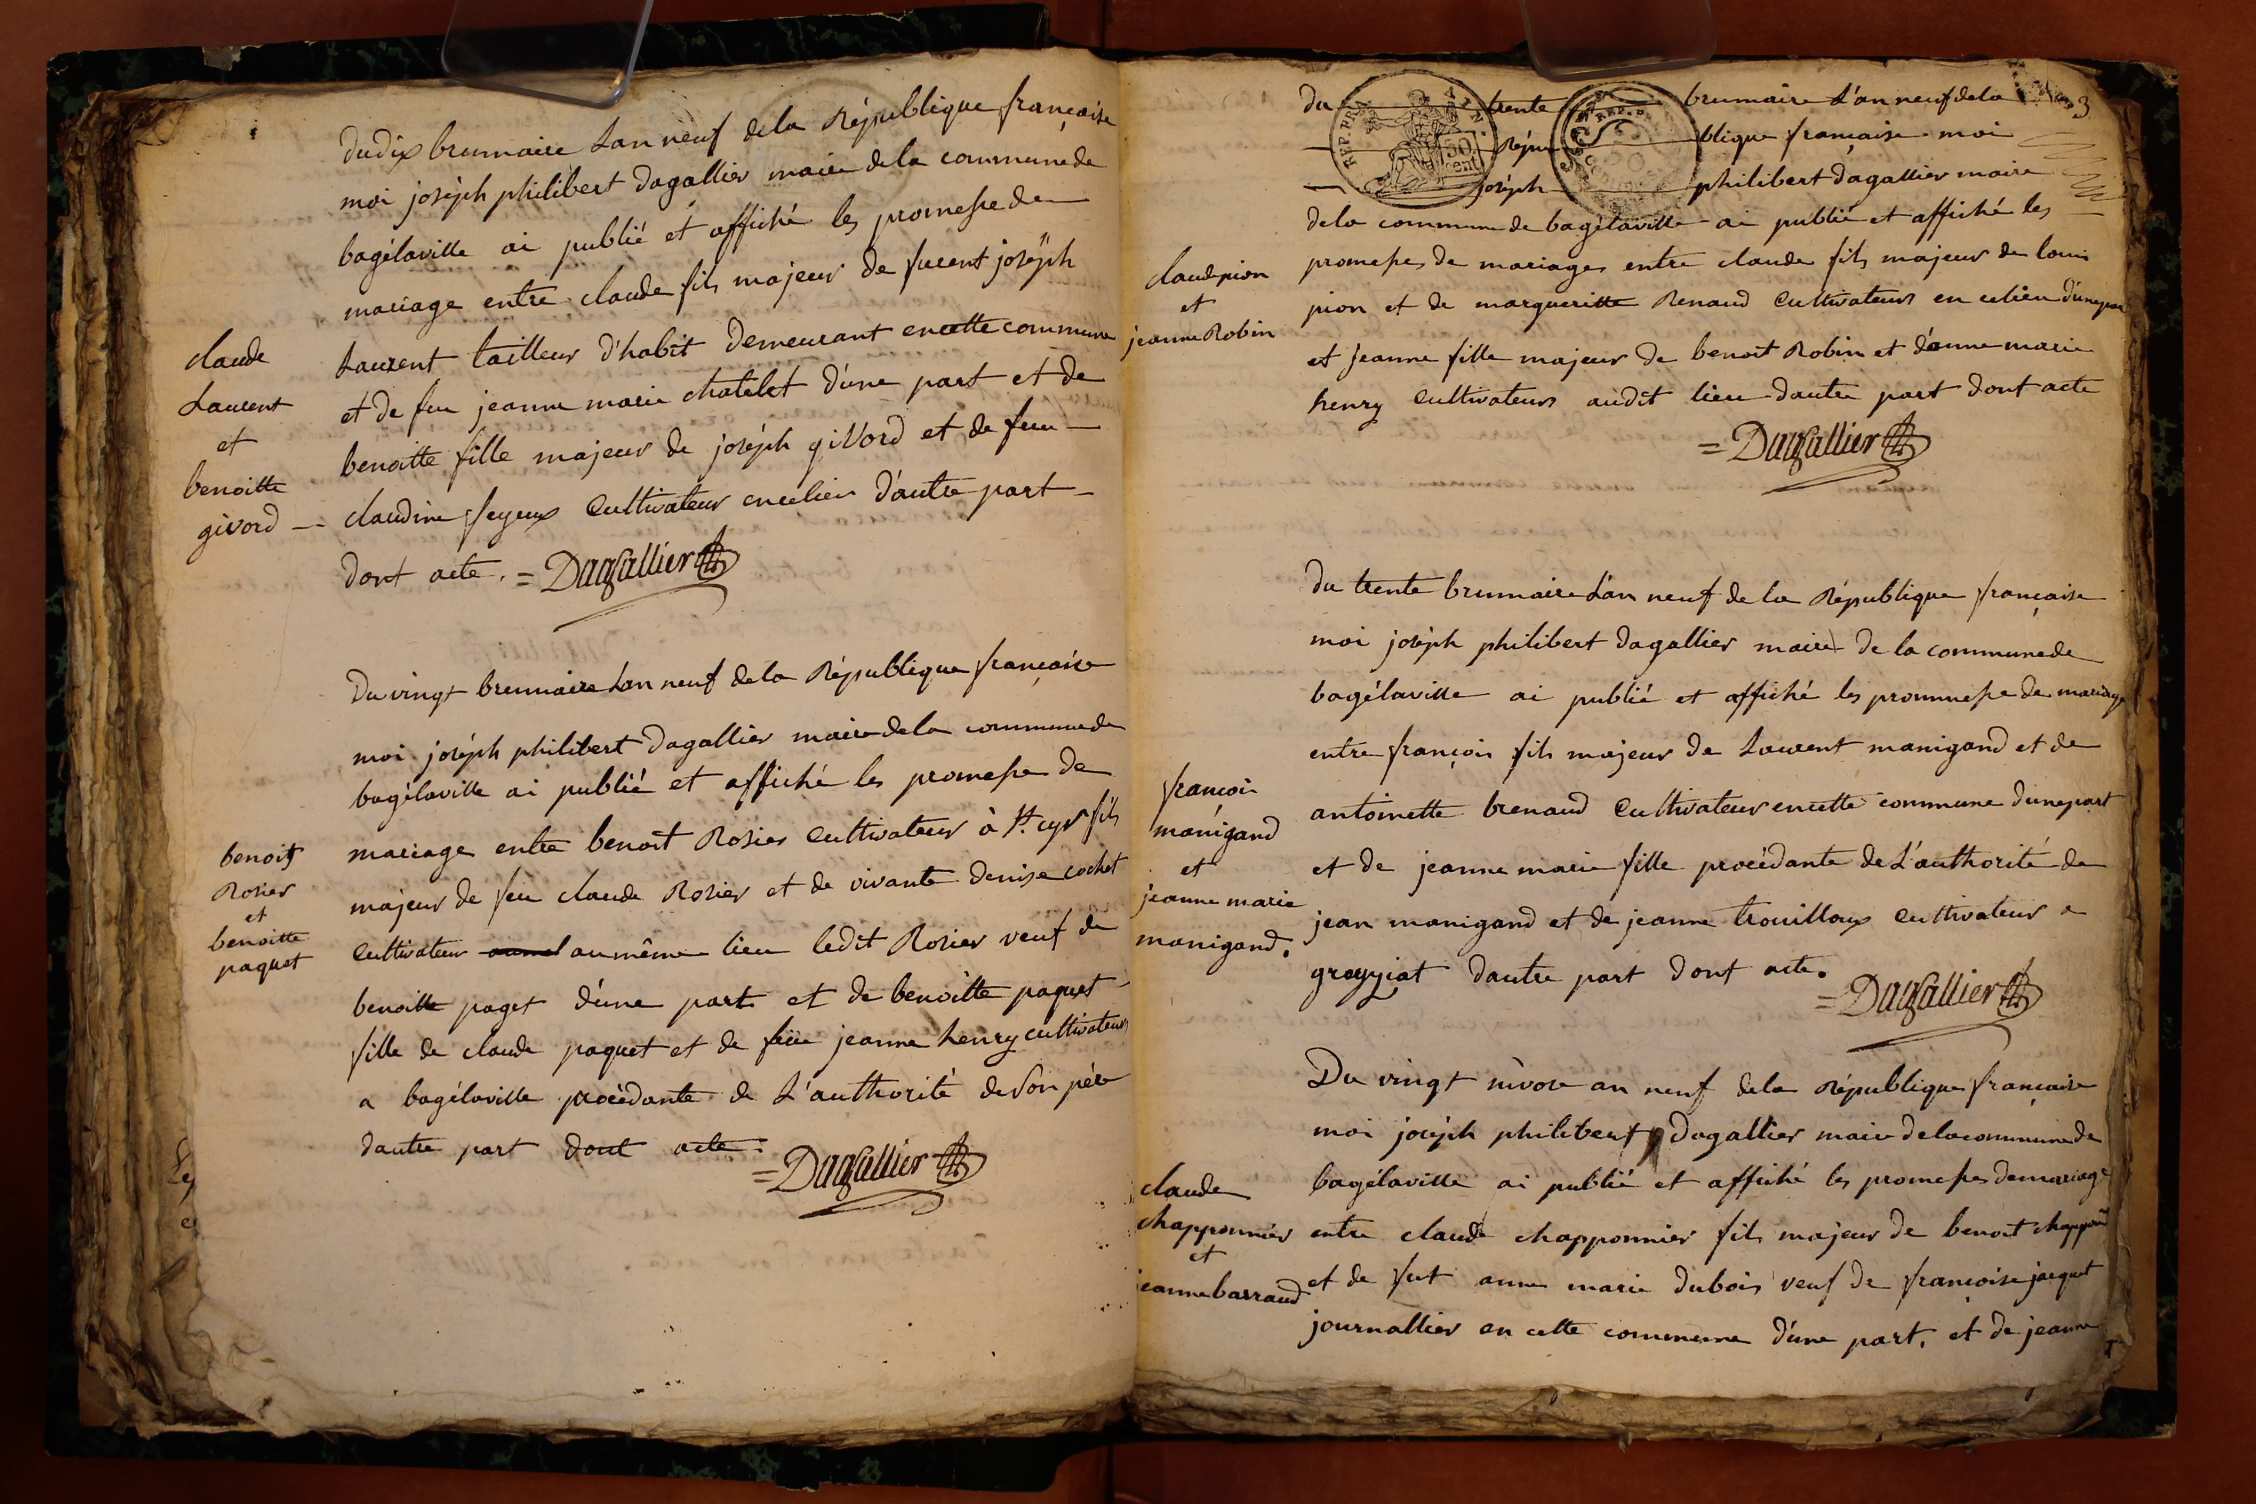 du dix brumaire L'an neuf dela République française
moi joséph philibert dagallier maire dela commune de
bagélaville ai publié et affiché les promesse de
mariage entre claude fils majeur de joséph
claude
Laurent
et
benoitte
givord
Laurent tailleur d'habit demeurant en cette commune
et de feu jeanne marie chatelet d'une part et de
benoitte fille majeur de joséph givord et de feu
claudine feyeux Cultivateur en ce lieu d'autre part
dont acte. = Dagallier
Du vingt brumaire L'an neuf dela République française
moi joséph philibert dagallier maire dela commune de
bagélaville ai publié et affiché les promesse de
mariage entre benoit Rosier Cultivateur à St. cyr fils
benoit
Rosier
et
benoitte
paquet
majeur de feu claude Rosier et de vivante denise cochet
Cultivateur au même lieu ledit Rosier veuf de
benoitte paget d'une part et de benoitte paquet
fille de claude paquet et de feüe jeanne henry cultivateurs
a bagélaville procédante de L'authorité de son pére
dautre part dont acte. = Dagallier
3
du trente brumaire L'an neuf dela
Répu blique française moi
joséph philibert dagallier maire
dela commune de bagélaville ai publié et affiché les
claude pion
et
jeanne Robin
promesses de mariages entre claude fils majeur de louis
pion et de margueritte Renaud Cultivateurs en ce lieu d'une part
et jeanne fille majeur de benoit Robin et d'anne marie
henry Cultivateurs audit lieu dautre part dont acte
= Dagallier
du trente brumaire L'an neuf de la République française
moi joséph philibert dagallier maire de la commune de
bagélaville ai publié et affiché les prommesse de mariage
entre françois fils majeur de Laurent manigand et de
françois
manigand
et
jeanne marie
manigand.
antoinette brenaud Cultivateur en cette commune d'une part
et de jeanne marie fille procédante de L'authorité de
jean manigand et de jeanne trouilloux Cultivateur a
grieges dautre part dont acte.
= Dagallier
Du vingt nivose an neuf dela République française
moi joséph philibert dagallier maire dela commune de
bagélaville ai publié et affiché les promesses de mariage
claude
chapponnier
et
jeanne barraud
entre claude chapponnier fils majeur de benoit
et de fut anne marie dubois veuf de françoise jaquet
journallier en cette commune d'une part, et de jeanne